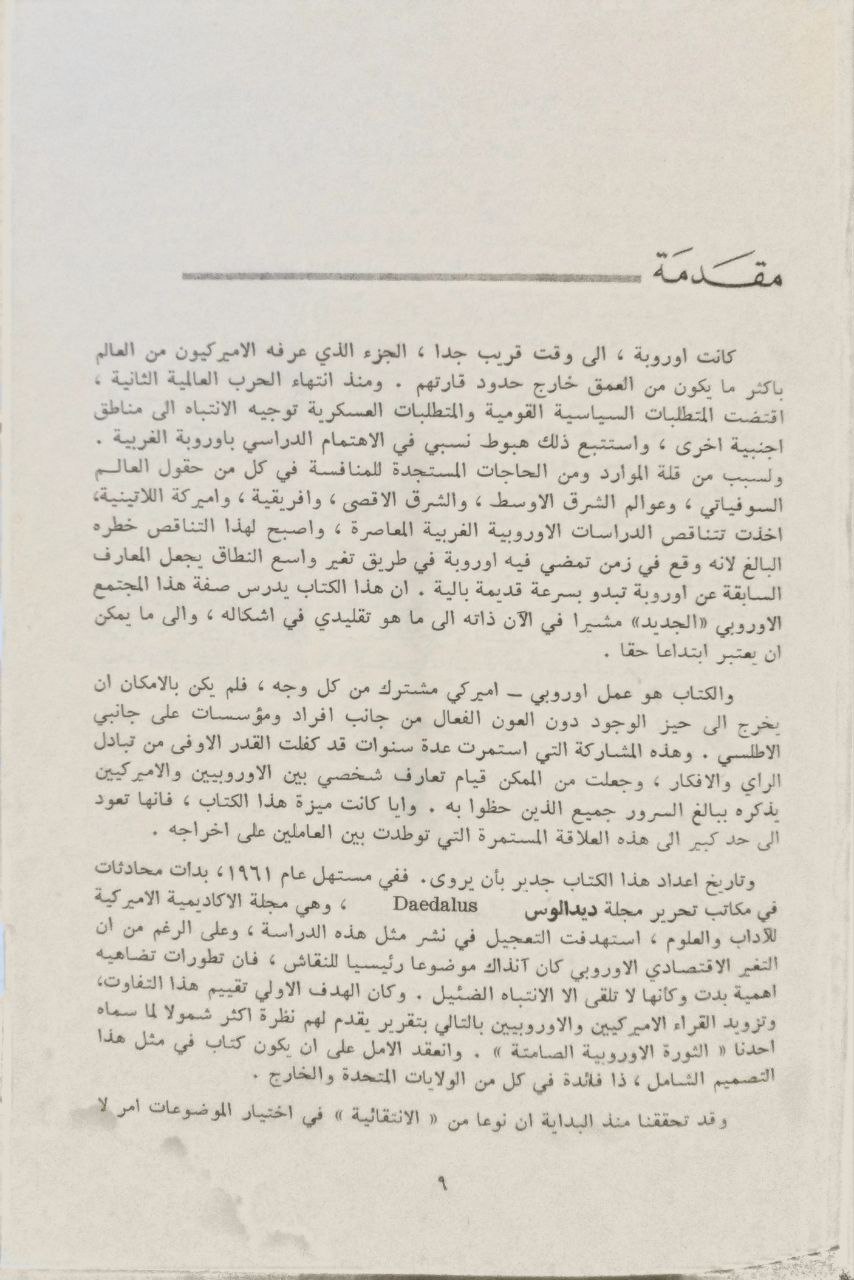 مقدمة
كانت اوروبة ، الى وقت قريب جدا ، الجزء الذي عرفه الاميركيون من العالم
باكثر ما يكون من العمق خارج حدود قارتهم . ومنذ انتهاء الحرب العالمية الثانية ،
اقتضت المتطلبات السياسية القومية والمتطلبات العسكرية توجيه الانتباه الى مناطق
اجنبية اخرى ، واستتبع ذلك هبوط نسبي في الاهتمام الدراسي باوروبة الغربية .
ولسبب من قلة الموارد ومن الحاجات المستجدة للمنافسة في كل من حقول العالم
السوفياتي ، وعوالم الشرق الاوسط ، والشرق الاقصى ، وافريقية ، واميركة اللاتينية،
اخذت تتناقص الدراسات الاوروبية الغربية المعاصرة ، واصبح لهذا التناقص خطره
البالغ لانه وقع في زمن تمضي فيه اوروبة في طريق تغير واسع النطاق يجعل المعارف
السابقة عن اوروبة تبدو بسرعة قديمة بالية . ان هذا الكتاب يدرس صفة هذا المجتمع
الاوروبي «الجديد» مشيرا في الآن ذاته الى ما هو تقليدي في اشكاله ، والى ما يمكن
ان يعتبر ابتداعا حقا .
والكتاب هو عمل اوروبي – اميركي مشترك من كل وجه ، فلم يكن بالامكان ان
يخرج الى حيز الوجود دون العون الفعال من جانب افراد ومؤسسات على جانبي
الاطلسي . وهذه المشاركة التي استمرت عدة سنوات قد كفلت القدر الاوفى من تبادل
الراي والافكار ، وجعلت من الممكن قيام تعارف شخصي بين الاوروبيين والاميركيين
يذكره ببالغ السرور جميع الذين حظوا به . وايا كانت ميزة هذا الكتاب ، فانها تعود
الى حد كبير الى هذه العلاقة المستمرة التي توطدت بين العاملين على اخراجه .
وتاريخ اعداد هذا الكتاب جدير بأن يروى. ففي مستهل عام ١٩٦١، بدات محادثات
في مكاتب تحرير مجلة ديدالوس Daedalus ، وهي مجلة الاكاديمية الاميركية
للآداب والعلوم ، استهدفت التعجيل في نشر مثل هذه الدراسة ، وعلى الرغم من ان
التغير الاقتصادي الاوروبي كان آنذاك موضوعا رئيسيا للنقاش ، فان تطورات تضاهيه
اهمية بدت وكانها لا تلقى الا الانتباه الضئيل . وكان الهدف الاولي تقييم هذا التفاوت،
وتزويد القراء الاميركيين والاوروبيين بالتالي بتقرير يقدم لهم نظرة اكثر شمولا لما سماه
احدنا « الثورة الاوروبية الصامتة » . وانعقد الامل على ان يكون كتاب في مثل هذا
التصميم الشامل ، ذا فائدة في كل من الولايات المتحدة والخارج .
وقد تحققنا منذ البداية ان نوعا من « الانتقائية » في اختيار الموضوعات امر لا
٩